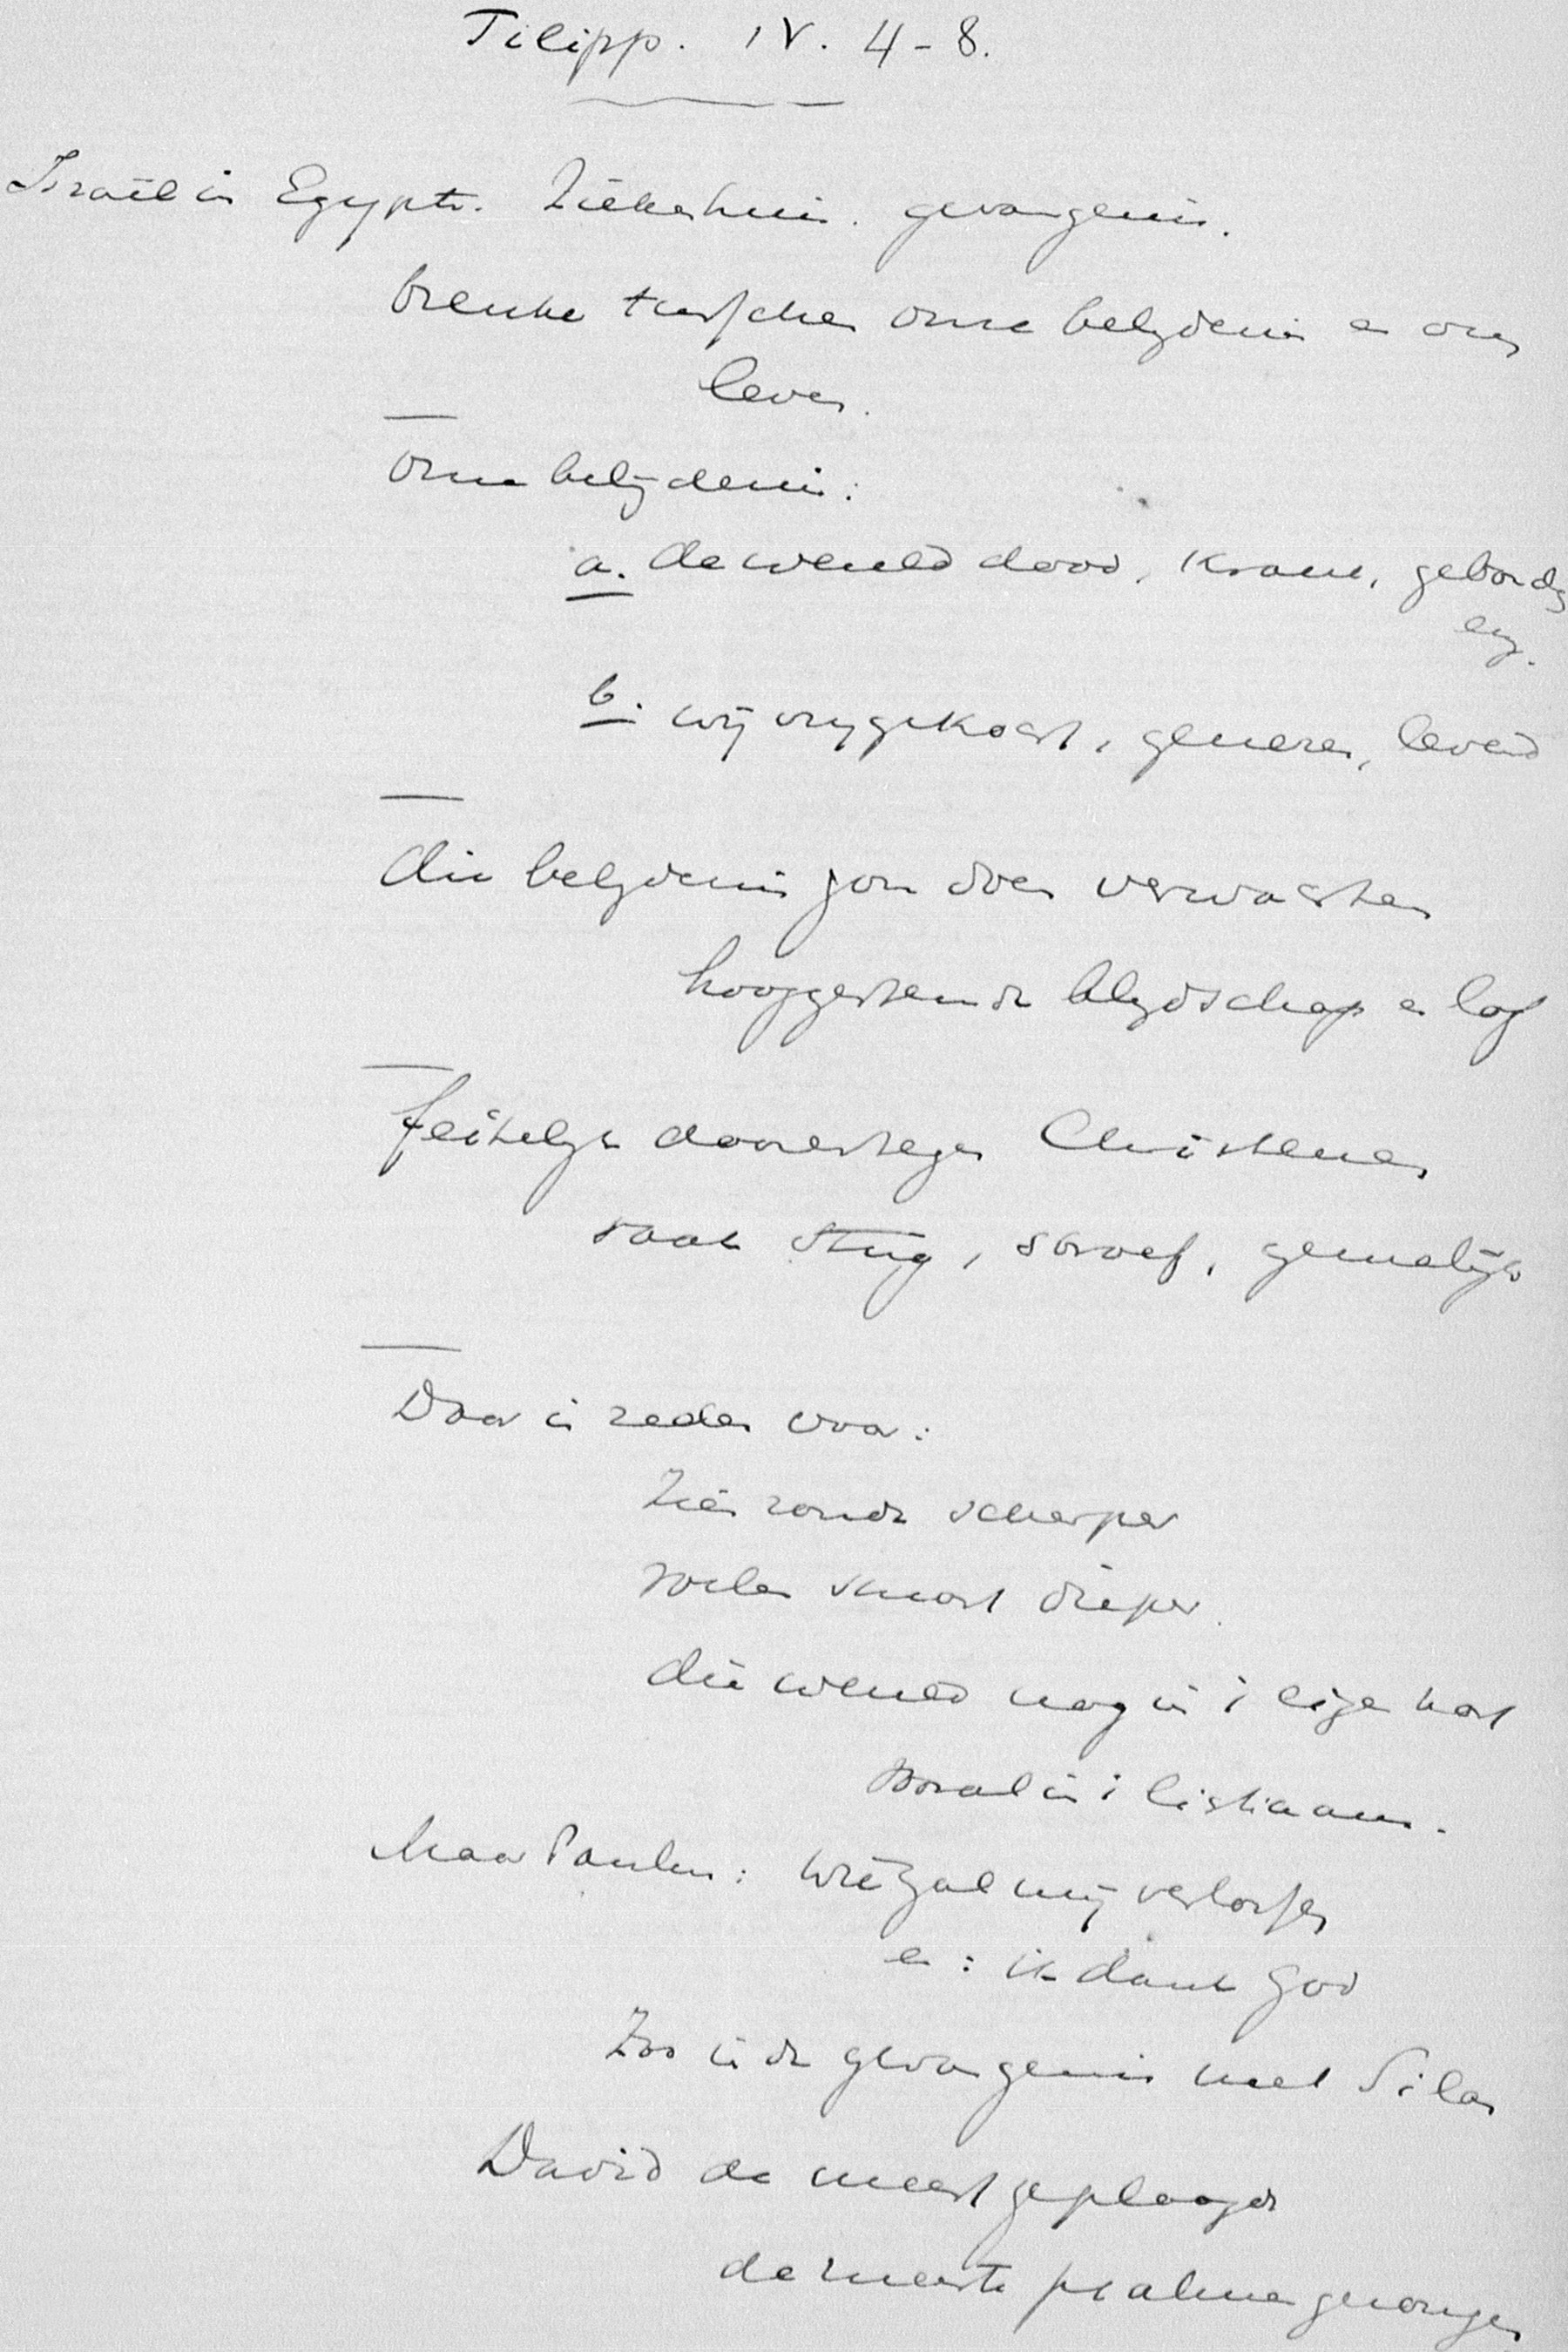 Filipp. IV. 4-8.
Israël in Egypte. Ziekenhuis. gevangenis.
breuke tusschen onze belijdenis en ons
leven.
onze belijdenis:
a. de wereld dood, krank, gebonden
b. wij vrijgekocht, genezen, levend
die belijdenis zou doen verwachten
hooggestemde blijdschap en lof
feitelijk daarentegen Christenen
vaak stug, stroef, gemelijk
Daar is reden voor:
Zien zonde scherper
voelen smart dieper.
die wereld nog in 't eigen hart
vooral in 't lichaam.
Maar Paulus: Wie zal mij verlossen
en: ik dank God
Zoo in de gevangenis met Silas
David de meest geplaagde
de meeste psalmen gezongen